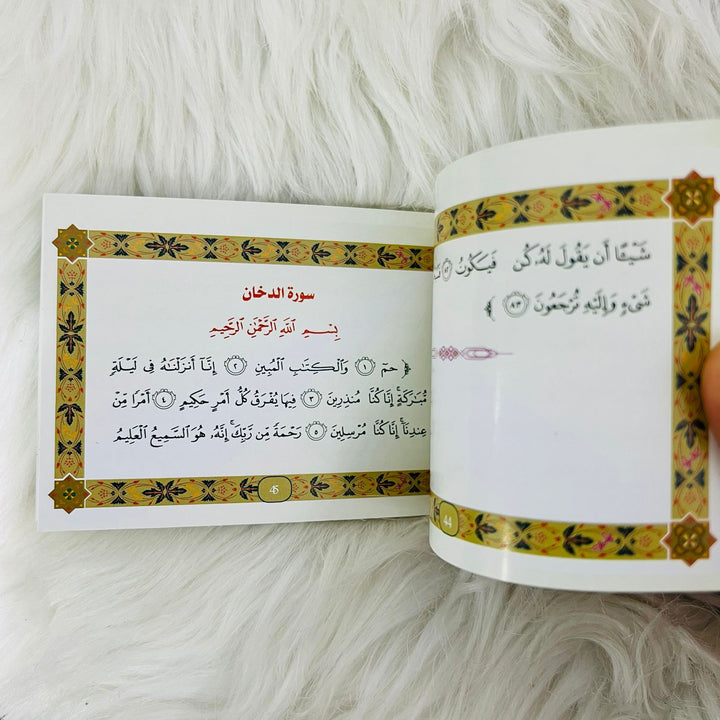 شَيْـًٔا أَن يَقُولَ لَهُۥ كُن فَيَكُونُ ٨٢
شَىْءٍ وَإِلَيْهِ تُرْجَعُونَ ٨٣ ﴾
44
سورة الدخان
بِسْمِ ٱللَّهِ ٱلرَّحْمَٰنِ ٱلرَّحِيمِ
﴿ حمٓ ١ وَٱلْكِتَٰبِ ٱلْمُبِينِ ٢ إِنَّآ أَنزَلْنَٰهُ فِى لَيْلَةٍ
مُّبَٰرَكَةٍ ۚ إِنَّا كُنَّا مُنذِرِينَ ٣ فِيهَا يُفْرَقُ كُلُّ أَمْرٍ حَكِيمٍ ٤ أَمْرًا مِّنْ
عِندِنَآ ۚ إِنَّا كُنَّا مُرْسِلِينَ ٥ رَحْمَةً مِّن رَّبِّكَ ۚ إِنَّهُۥ هُوَ ٱلسَّمِيعُ ٱلْعَلِيمُ
45